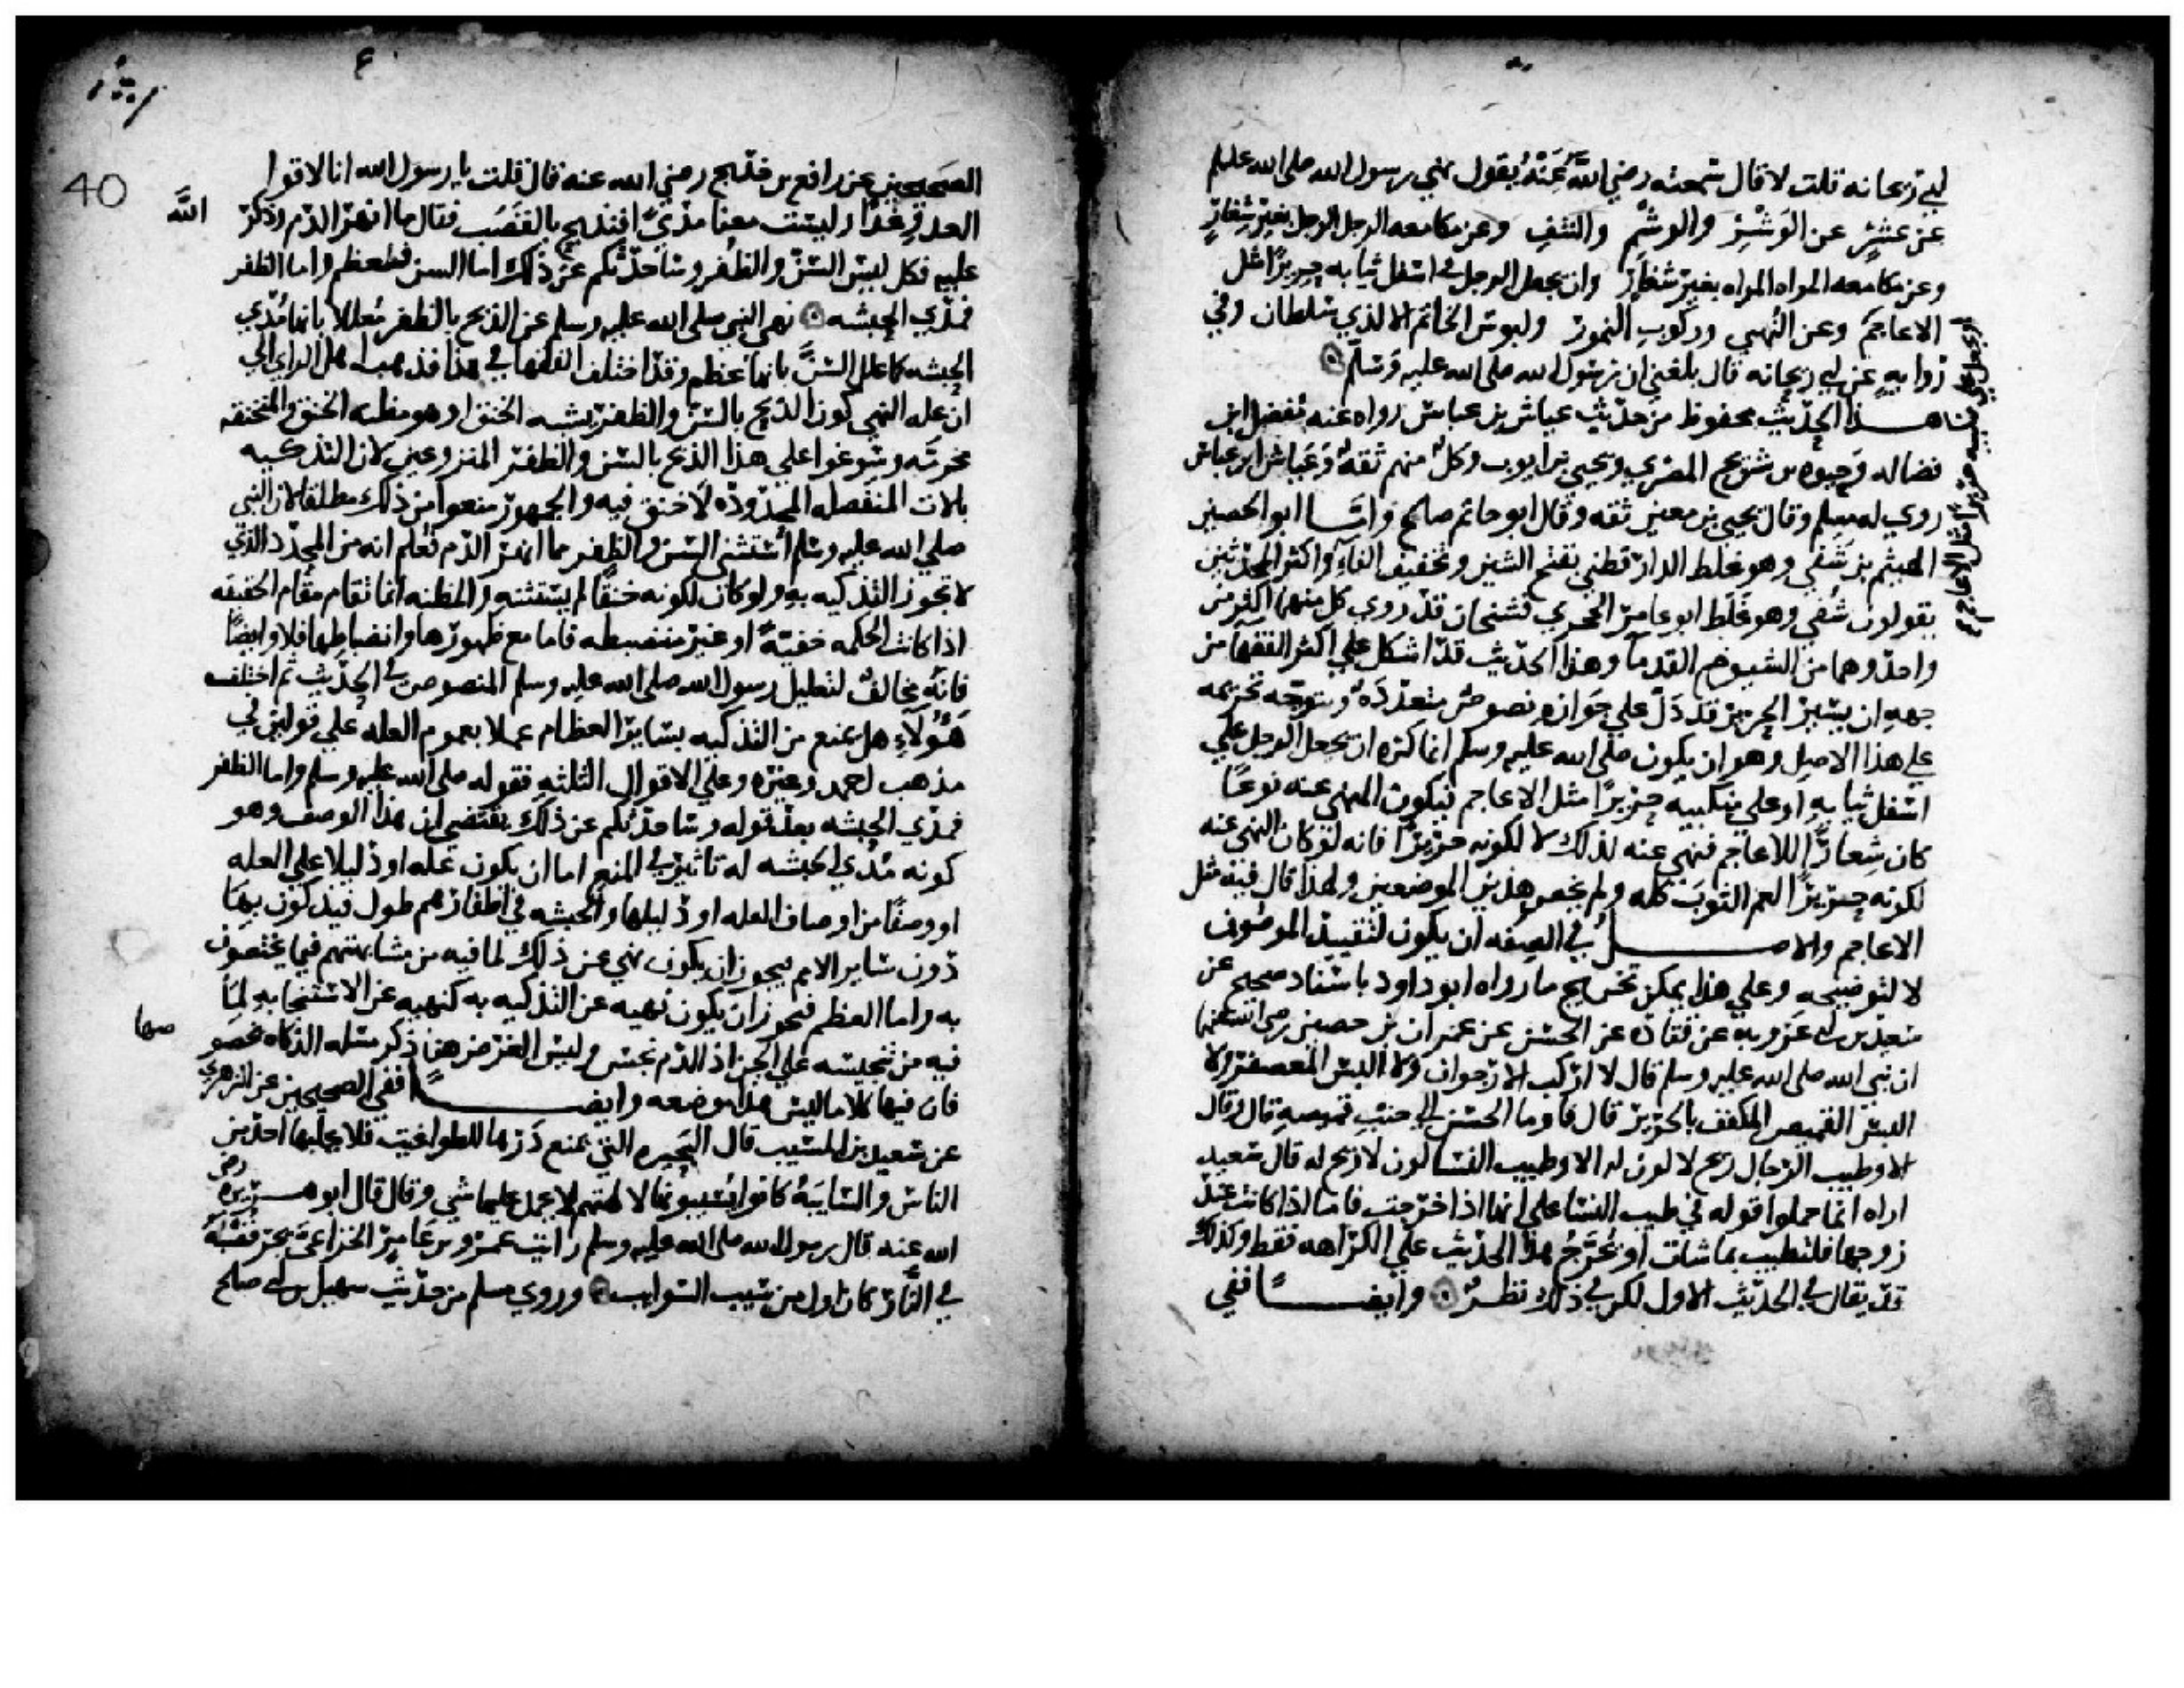 ابي ريحانه قلت لا قال سمعته رضي اللّٰه عَنْهُ يقول نهي رسول الله صلى الله عليه
عن عشر عن الوَشْر والوشم والنتف وعن مكامعه الرجل الرجل بغير شعار
وعن مكامعه المراه المراه بغير شعار وان يجعل الرجل في اسفل ثيابه حريرًا مثل
الاعاجم وعن النُهبي وركوب النمور ولبوس الخاتم الا لذي سلطان وفي
روايه عن ابي ريحانه قال بلغني ان رسول الله صلى الله عليه وسلم
هذا الحديث محفوظ من حديث عياش بن عباس رواه عنه مفضل ابن
فضاله وحيوه بن شريح المصري ويحيى بن ايوب وكلٌ منهم ثقهٌ وعياش ابن عباس
روي له مسلم وقال يحيى بن معين ثقه وقال ابو حاتم صالح وامّا ابو الحصين
الهيثم بن شَفي وهو غلط الدارقطني بفتح الشين وتخفيف الفاء واكثر المحدثين
يقولون شُفي وهو غَلَط ابو عامر الحجري فشيخان قد روي كل منهما اكثر من
واحد وهما من الشيوخ القدما وهذا الحديث قد اشكل علي اكثر الفقها من
جهه ان يسير الحرير قد دَلّ علي جوازه نصوص متعدّدَه ويتوجّه تحريمه
علي هذا الاصل وهو ان يكون صلى الله عليه وسلم انما كره ان يجعل الرجل علي
اسفل ثيابه او علي منكبيه حريرًا مثل الاعاجم فيكون المنهي عنه نوعًا
كان شِعارًا للاعاجم فنهي عنه لذلك لا لكونه حريرًا فانه لو كان النهي عنه
لكونه حريرًا لعم الثوبَ كله ولم يخص هذين الموضعين ولهذا قال فيه مثل
الاعاجم والاصل في الصفه ان يكون لتقييد الموصوف
لا لتوضيحه وعلي هذا يمكن تخريج ما رواه ابو داود باسناد صحيح عن
سعيد بن ابي عَروبه عن قتادَه عن الحسن عن عمران بن حصين رضي الله عنهما
ان نبي الله صلى الله عليه وسلم قال لا اركب الارجوان ولا البس المعصفر ولا
البس القميص المكفف بالحرير قال فاوما الحسن الي جَيْب قميصهِ قال وقال
الا وطيب الرجال ريح لا لون له الا وطيب النسا لون لا ريح له قال سعيد
اراه انما حملوا قوله في طيب النسا علي انها اذا خرجت فاما اذا كانت عند
زوجها فلتطيب بما شات او يُخرّجُ هذا الحديث علي الكراهه فقط وكذلك
قد يقال في الحديث الاول لكن في ذلك نظرٌ وايضًا ففي
او يجعل علي منكبيه حريرًا مثل الاعاجم
40
الصحيحين عن رافع بن خديج رضي الله عنه قال قلت يا رسول الله انا لاقوا
العدو غدًا وليست معنا مدىً افنذبح بالقصَب فقال ما انهر الدم وذكر
اللَّه
عليه فكل ليس السنّ والظُفر وساحدّثكم عن ذلك اما السن فعظم واما الظفر
فمدي الحبشه نهي النبي صلى الله عليه وسلم عن الذبح بالظفر مُعللا بانها مُدَي
الحبشه كما علل السنّ بانها عظم وقد اختلف الفقها في هذا فذهب اهل الراي الي
ان عله النهي كون الذبح بالسن والظفر يشبه الخنق او هو مظنه الخنق والمنخنقه
محرمَه وسوغوا علي هذا الذبح بالسن والظفر المنزوعين لان التذكيه
بالات المنفصله المحدّودَه لا خنق فيه والجمهور منعوا من ذلك مطلقا لان النبي
صلي الله عليه وسلم استثني السن والظفر مما انهر الدم فعُلم انه من المحدّد الذي
لا تجوز التذكيه به ولو كان لكونه خنقًا لم يستثنه والمظنه انما تقام مقام الحقيقه
اذا كانت الحكمه خفيّهً او غير منضبطه فاما مع ظهورها وانضباطها فلا وايضًا
فانّه مخالفٌ لتعليل رسول الله صلى الله عليه وسلم المنصوص في الحديث ثم اختلف
هَؤُلَاءِ هل يمنع من التذكيه بساير العظام عملا بعموم العله علي قولين في
مذهب احمد وغيره وعلي الاقوال الثلثه فقوله صلى الله عليه وسلم واما الظفر
فمدي الحبشه بعد قوله وساحدّثكم عن ذلك يقتضي ان هذا الوصف وهو
كونه مُدي الحبشه له تاثير في المنع اما ان يكون عله او دليلا علي العله
او وصفًا من اوصاف العله او دليلها والحبشه في اظفارهم طول فيذكون بِهَا
دون ساير الامم فيجوز ان يكون نهي عن ذلك لما فيه من مشابهتهم فيما يختصون
به واما العظم فيجوز ان يكون نهيه عن التذكيه به كنهيه عن الاستنجا بهِ لِمَا
فيه من تنجيسه علي الجن اذ الدّم نجس وليس الغرض هنا ذكر مسله الذكاه بخصو
صها
فان فيها كلاما ليس هذا موضعه وايضًا ففي الصحيحين عن الزهري
عن سعيد بن المسَيب قال البَحيره التي يمنع دَرّها للطواغيت فلا يحلبها احد من
الناس والسَايبَهُ كانوا يُسَيبونها لالهتهم لا يحمل عليها شي وقال قال ابو هريره رضي
الله عنه قال رسول الله صلى الله عليه وسلم رايت عمرو بن عَامِر الخزاعيَ يجر قُصْبَهُ
في النّار كان اول من سَيب السَوايب وروي مسلم من حديث سهيل بن ابي صالح